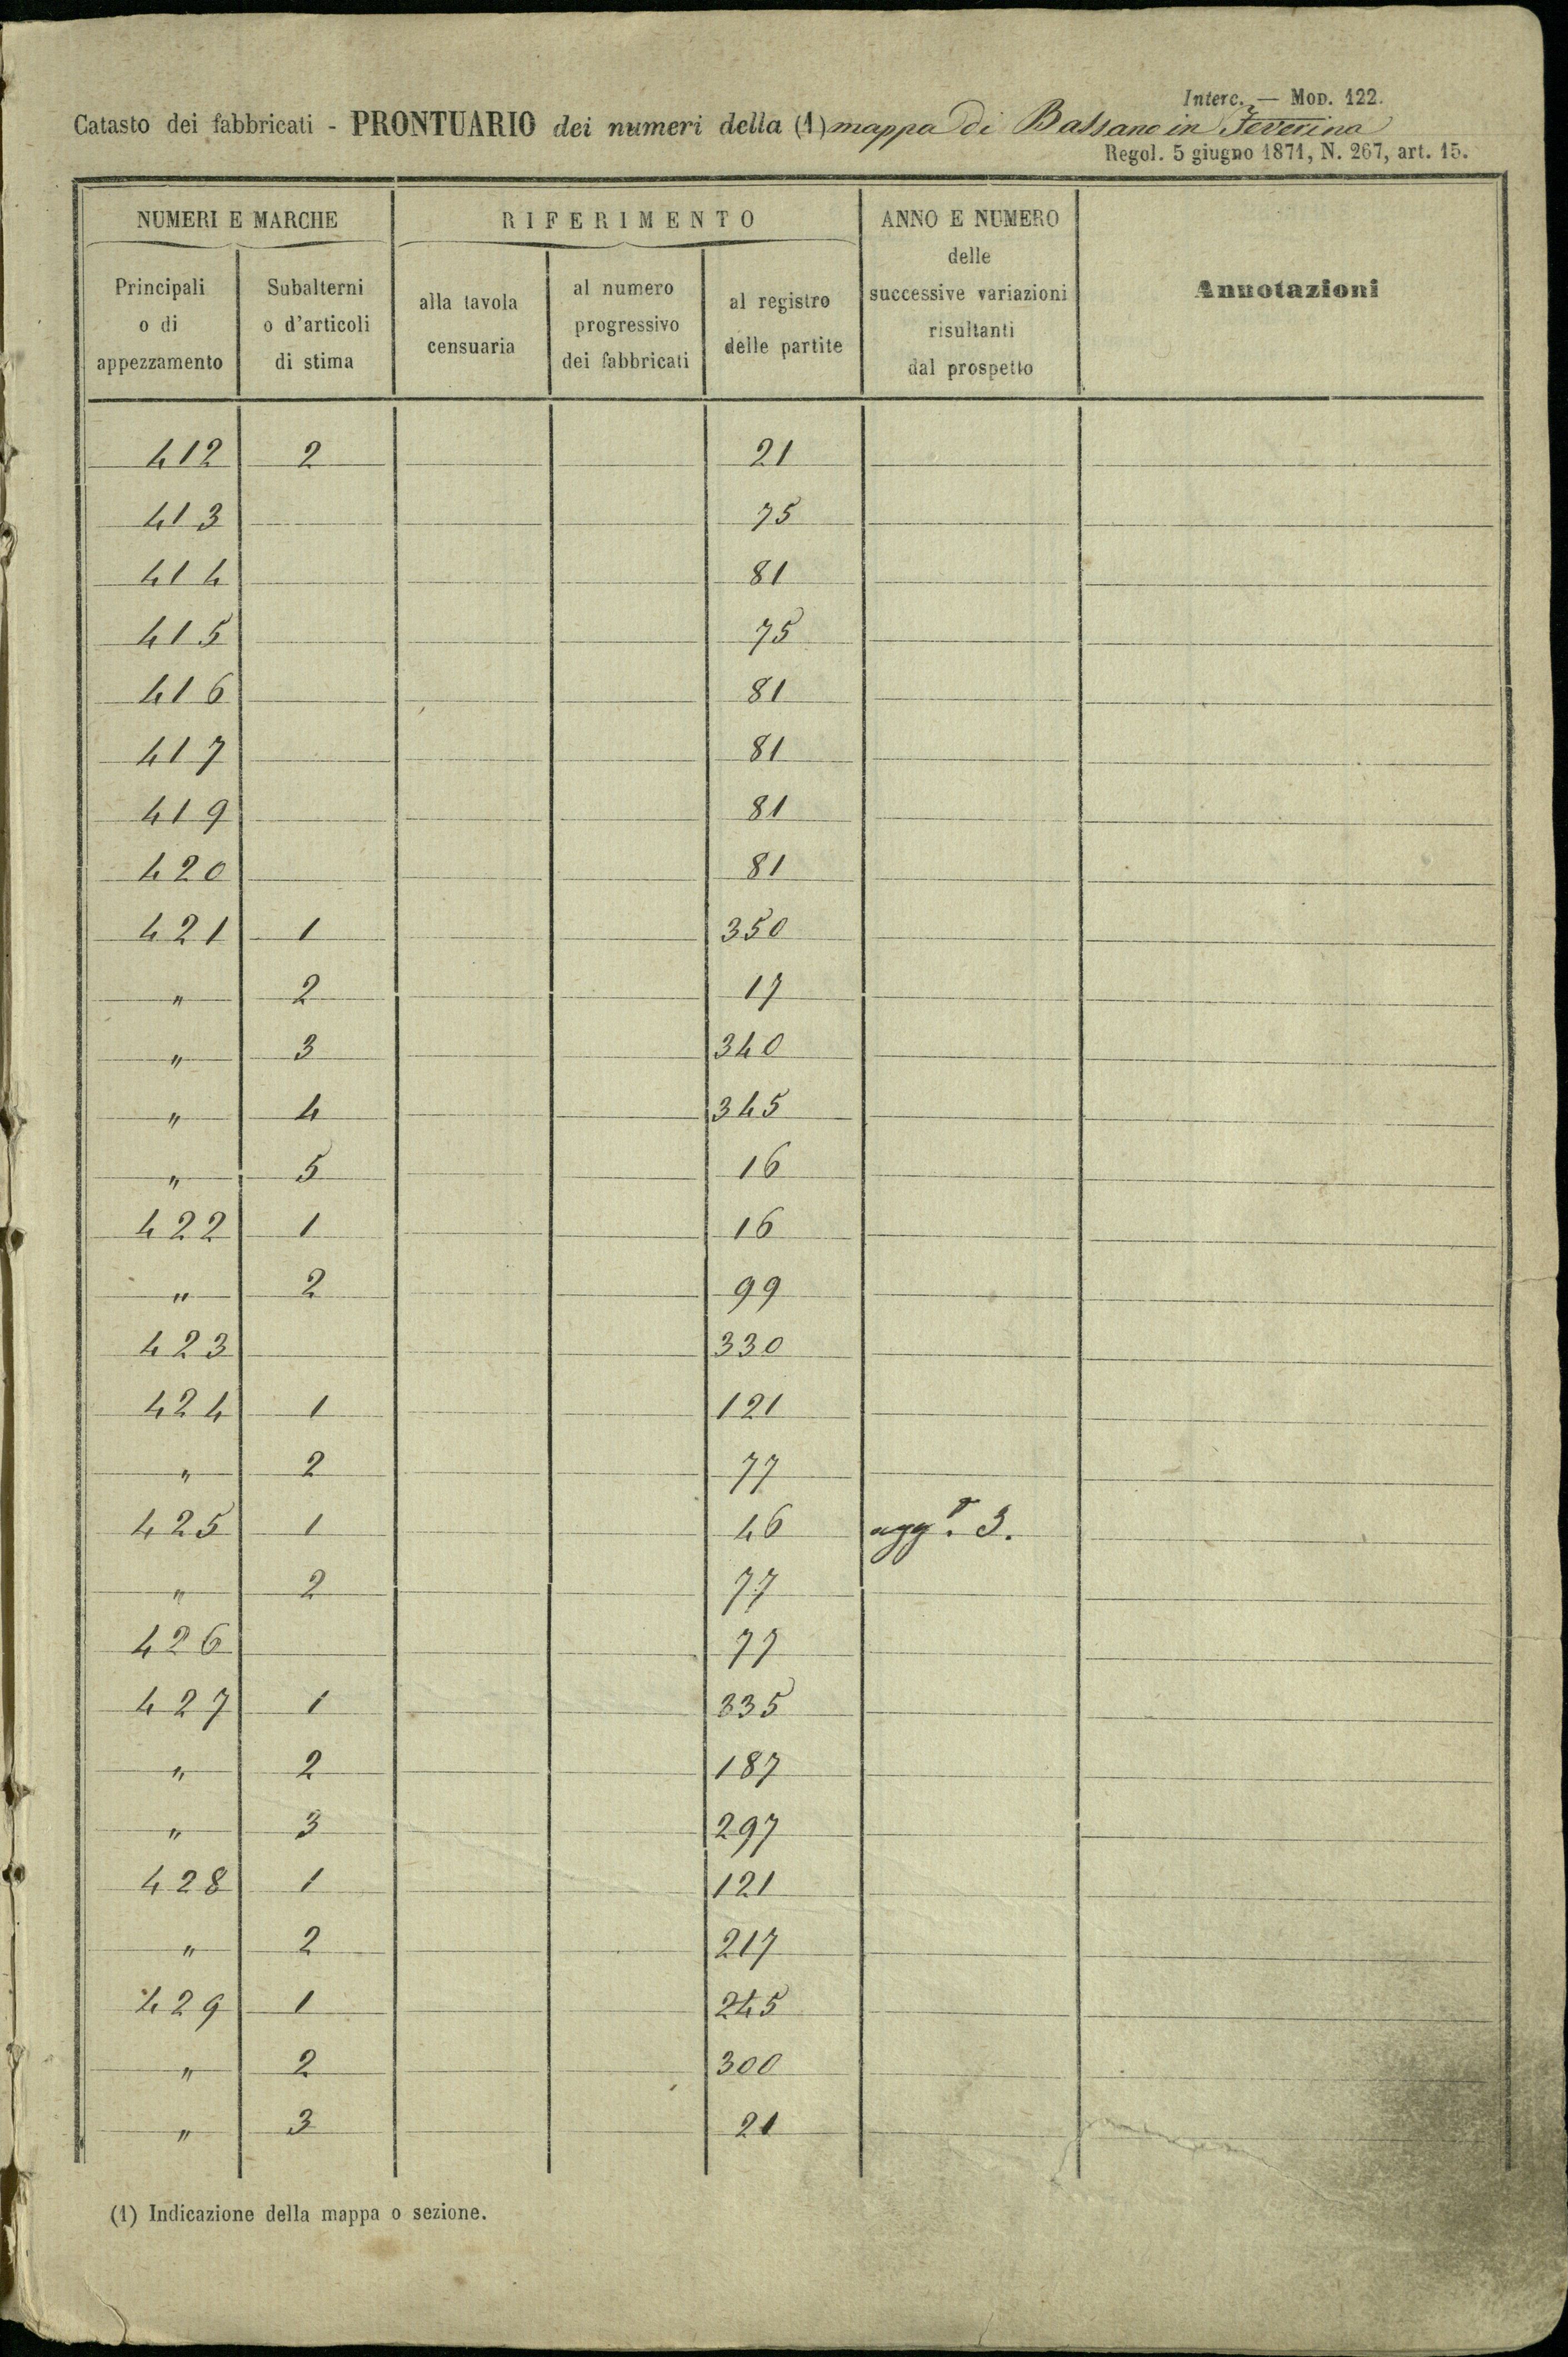 Interc. — Mod. 122.
Catasto dei fabbricati - PRONTUARIO dei numeri della (1) mappa di Bassano in Teverina
Regol. 5 giugno 1871, N. 267, art. 15.
NUMERI E MARCHE
Principali o di appezzamento
Subalterni o d'articoli di stima
RIFERIMENTO
alla tavola censuaria
al numero progressivo dei fabbricati
al registro delle partite
ANNO E NUMERO delle successive variazioni risultanti dal prospetto
Annotazioni
412 2 21
413 75
414 81
415 75
416 81
417 81
419 81
420 81
421 1 350
" 2 17
" 3 340
" 4 345
" 5 16
422 1 16
" 2 99
423 330
424 1 121
" 2 77
425 1 46 aggr. 3.
" 2 77
426 77
427 1 335
" 2 187
" 3 297
428 1 121
" 2 217
429 1 245
" 2 300
" 3 21
(1) Indicazione della mappa o sezione.